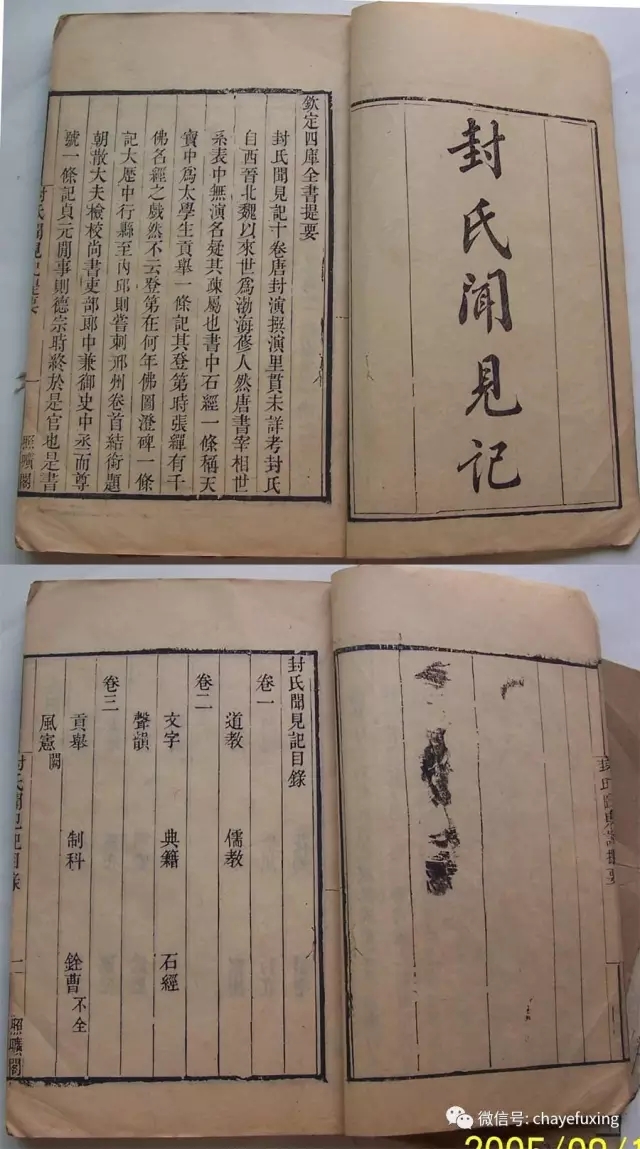 封氏聞見記
欽定四庫全書提要
封氏聞見記十卷唐封演撰演里貫未詳考封氏
自西晉北魏以來世爲渤海蓨人然唐書宰相世
系表中無演名疑其疎屬也書中石經一條稱天
寶中爲太學生貢舉一條記其登第時張繟有千
佛名經之戲然不云登第在何年佛圖澄碑一條
記大歷中行縣至內邱則嘗刺邢州卷首結銜題
朝散大夫檢校尚書吏部郎中兼御史中丞而尊
號一條記貞元閒事則德宗時終於是官也是書
封氏聞見記提要
一
照曠閣
封氏聞見記提要
封氏聞見記目錄
卷一
道教 儒教
卷二
文字 典籍 石經
聲韻
卷三
貢舉 制科 銓曹不全
風憲闕
封氏聞見記目錄
一
照曠閣
微信号: chayefuxing